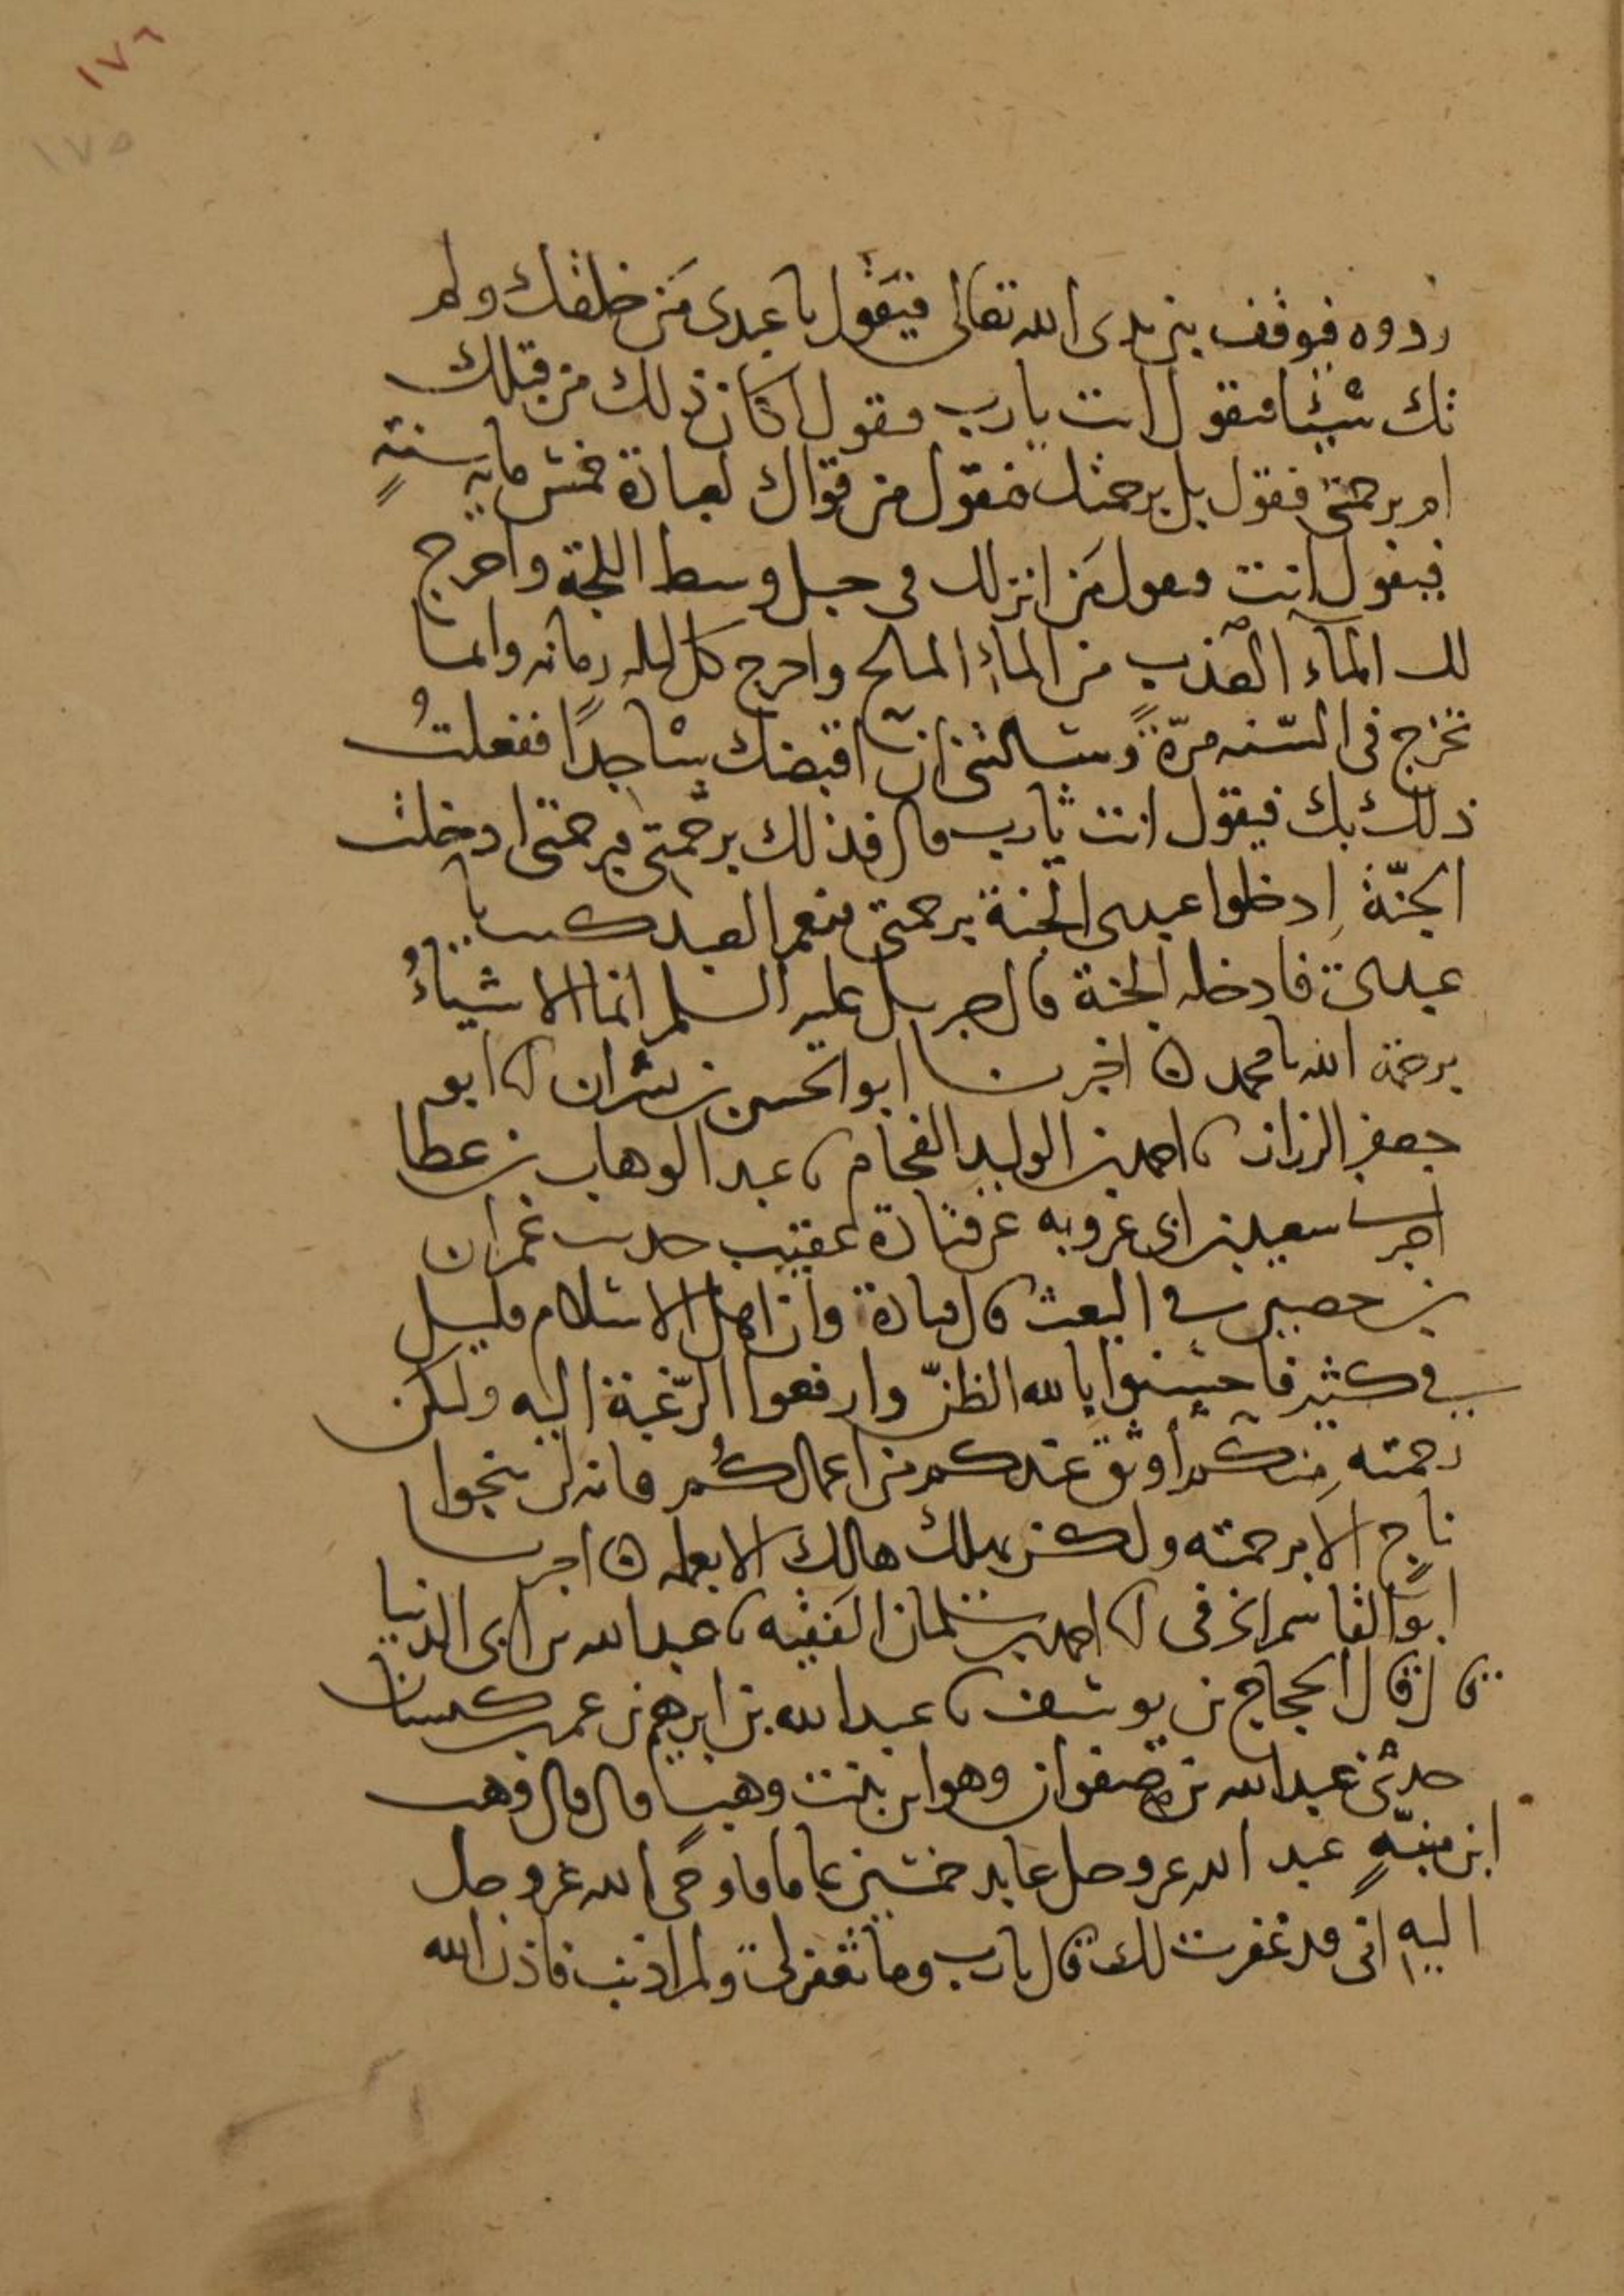 ١٧٦
١٧٥
ردوه فيوقف بين يدى الله تعالى فيقول يا عبدى من خلقك ولم
تك شيئا فيقول انت يا رب فيقول اكان ذلك من قبلك
ام برحمتى فيقول بل برحمتك فيقول من قواك لعبادة خمس ماية سنة
فيقول انت فيقول من انزلك فى جبل وسط اللجة واخرج
لك الماء العذب من الماء المالح واخرج كل ليله رمانه وانما
تخرج فى السنه مرة وسالتنى ان اقبضك ساجدا ففعلت
ذلك بك فيقول انت يا رب قال فذلك برحمتى وبرحمتى ادخلت
الجنة ادخلوا عبدى الجنة برحمتى فنعم العبد كنت يا
عبدى فادخله الجنة قال جبريل عليه السلم انما الاشياء
برحمة الله يا محمد ه اخبرنا ابو الحسين بن بشران انا ابو
جعفر الرزاز نا احمد بن الوليد الفحام نا عبد الوهاب بن عطا
اخبرنا سعيد بن ابى عروبه عن قتادة عقيب حديث عمران
بن حصين فى البعث قال قتادة وان اهل الاسلام قليل
فى كثير فاحسنوا بالله الظن وارفعوا الرغبة اليه ولتكن
رحمته منكم اوثق عندكم من اعمالكم فانه لن ينجوا
ناج الا برحمته ولكن يهلك هالك الا بعمله ه اخبرنا
ابو القاسم الحرفى انا احمد بن سلمان الفقيه نا عبد الله بن ابى الدنيا
قال قال الحجاج بن يوسف نا عبد الله بن ابرهيم بن عمر بن كيسان
حدثنى عبد الله بن صفوان وهو ابن بنت وهب قال قال وهب
ابن منبه عبد الله عز وجل عابد خمسين عاما فاوحى الله عز وجل
اليه انى قد غفرت لك قال يا رب وما تغفر لى ولم اذنب فاذن الله